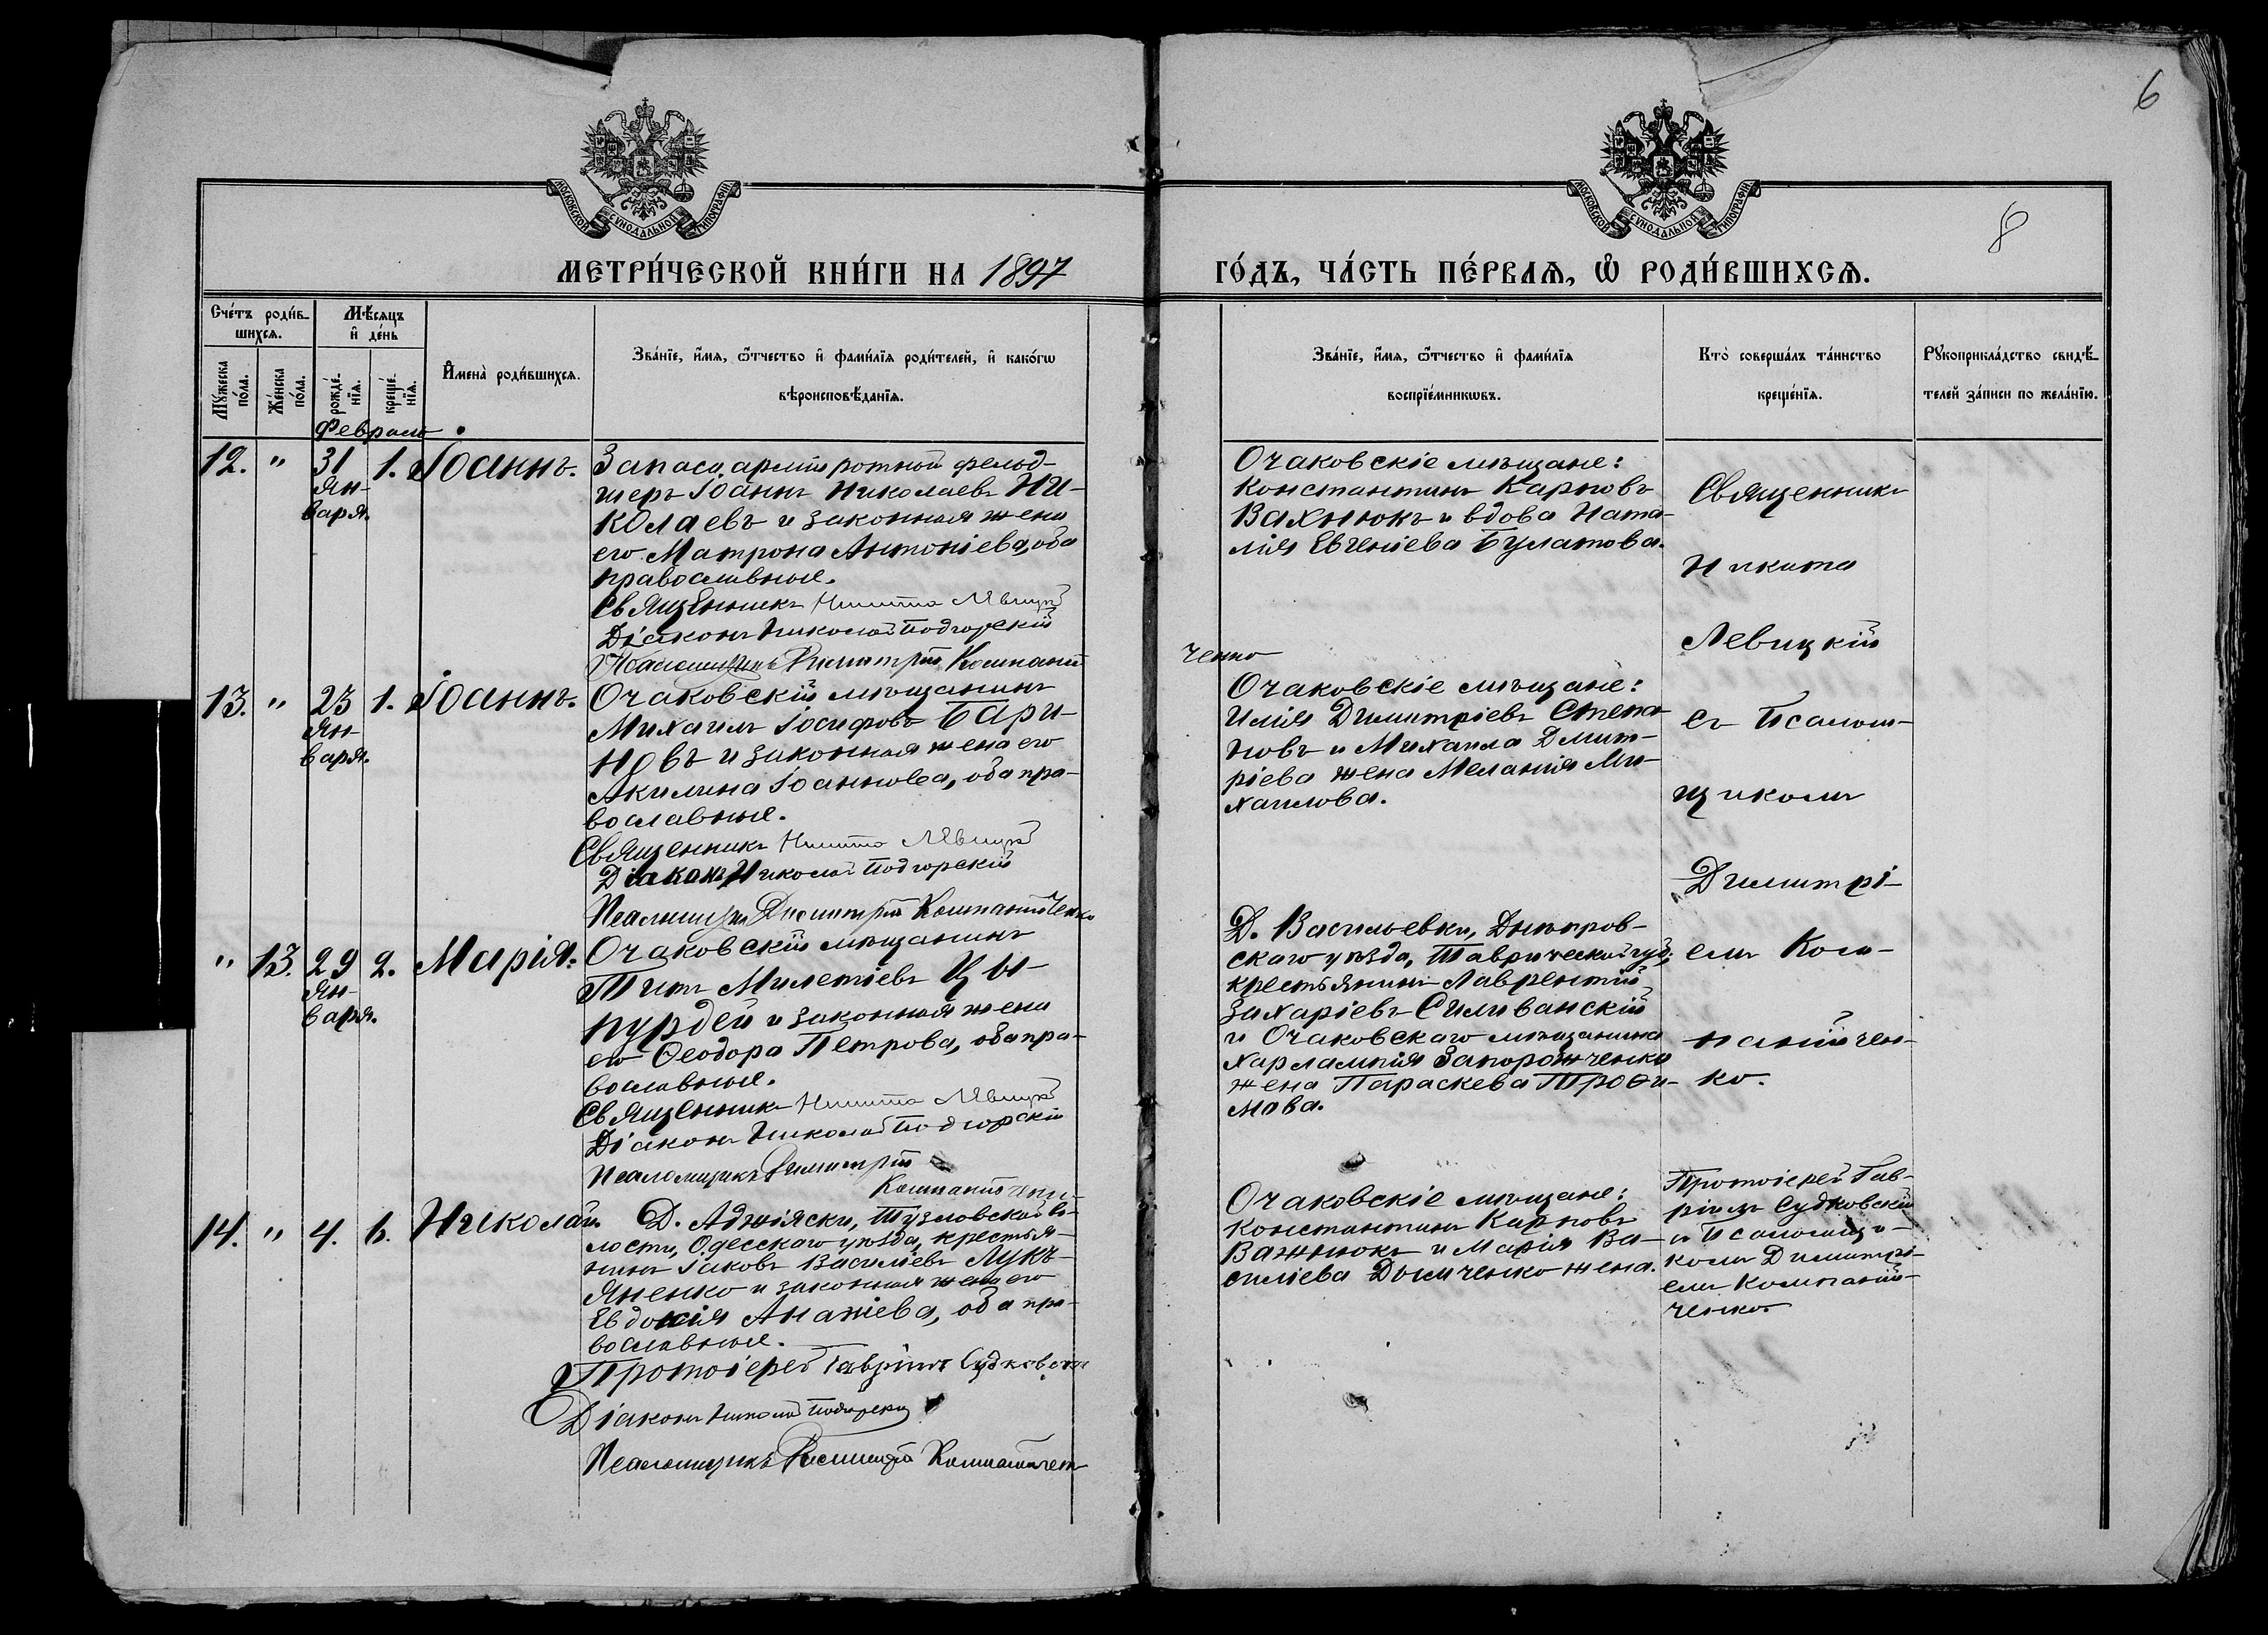 6
8
МОСКОВСКОЙ СѴНОДАЛЬНОЙ ТИПОГРАФІИ
МОСКОВСКОЙ СѴНОДАЛЬНОЙ ТИПОГРАФІИ
МЕТРИ́ЧЕСКОЙ КНИ́ГИ НА 1897 ГО́ДЪ, ЧА́СТЬ ПЕ́РВАѦ, Ѡ РОДИ́ВШИХСѦ.
Сче́тъ роди́в-
шихсѧ.
Мѣ́сѧцъ
и҆ де́нь
Мꙋ́жеска
по́ла.
Же́нска
по́ла.
рожде́-
нїѧ.
креще́-
нїѧ.
И҆мена̀ роди́вшихсѧ.
Зва́нїе, и҆́мѧ, ѻ҆́тчество и҆ фами́лїѧ роди́телей, и҆ како́гѡ
вѣроисповѣ́данїѧ.
Зва́нїе, и҆́мѧ, ѻ҆́тчество и҆ фами́лїѧ
воспрїе́мникѡвъ.
Кто̀ соверша́лъ та́инство
креще́нїѧ.
Рꙋкоприкла́дство свидѣ́-
телей за́писи по жела́нїю.
Февраль.
12. " 31 Ян-
варя. 1. Іоаннъ.
Запаса арміи ротной фельд-
шеръ Іоаннъ Николаевъ Ни-
колаевъ и законная жена
его Матрона Антоніева, оба
православные.
Священникъ Никита Левицкій
Діаконъ Николай Подгорскій
Псаломщикъ Димитрій Компаній
ченко
Очаковскіе мѣщане:
Константинъ Карповъ
Вахнюкъ и вдова Ната-
лія Евгеніева Булатова.
Священникъ
Никита
Левицкій
съ Псалом-
щикомъ
Димитрі-
емъ Ком-
панійчен-
ко.
13. " 23 Ян-
варя. 1. Іоаннъ.
Очаковскій мѣщанинъ
Михаилъ Іосифовъ Бари-
новъ и законная жена его
Акилина Іоаннова, оба пра-
вославные.
Священникъ Никита Левицкій
Діаконъ Николай Подгорскій
Псаломщикъ Димитрій Компанійченко
Очаковскіе мѣщане:
Илія Димитріевъ Степа-
новъ и Михаила Дмит-
ріева жена Меланія Ми-
хаилова.
" 13. 29 Ян-
варя. 2. Марія.
Очаковскій мѣщанинъ
Титъ Милетіевъ Цы-
пурдей и законная жена
его Ѳеодора Петрова, оба пра-
вославные.
Священникъ Никита Левицкій
Діаконъ Николай Подгорскій
Псаломщикъ Димитрій
Компанійченко
Д. Васильевки, Днѣпров-
скаго уѣзда, Таврической губ.
крестьянинъ Лаврентій
Захаріевъ Силиванскій
и Очаковскаго мѣщанина
Харлампія Запорожченка
жена Параскева Троѳи-
мова.
14. " 4. 6. Николай.
Д. Аджіяски, Тузловской во-
лости, Одесскаго уѣзда, крестья-
нинъ Іаковъ Василіевъ Лукъ-
яненко и законная жена его
Евдокія Ананіева, оба пра-
вославные.
Протоіерей Гавріилъ Судковскій
Діаконъ Николай Подгорскій
Псаломщикъ Димитрій Компанійчен
Очаковскіе мѣщане:
Константинъ Карповъ
Важнюкъ и Марія Ва-
силіева Дымченко жена.
Протоіерей Гав-
ріилъ Судковскій
съ Псаломщи-
комъ Димитрі-
емъ Компаній-
ченко.